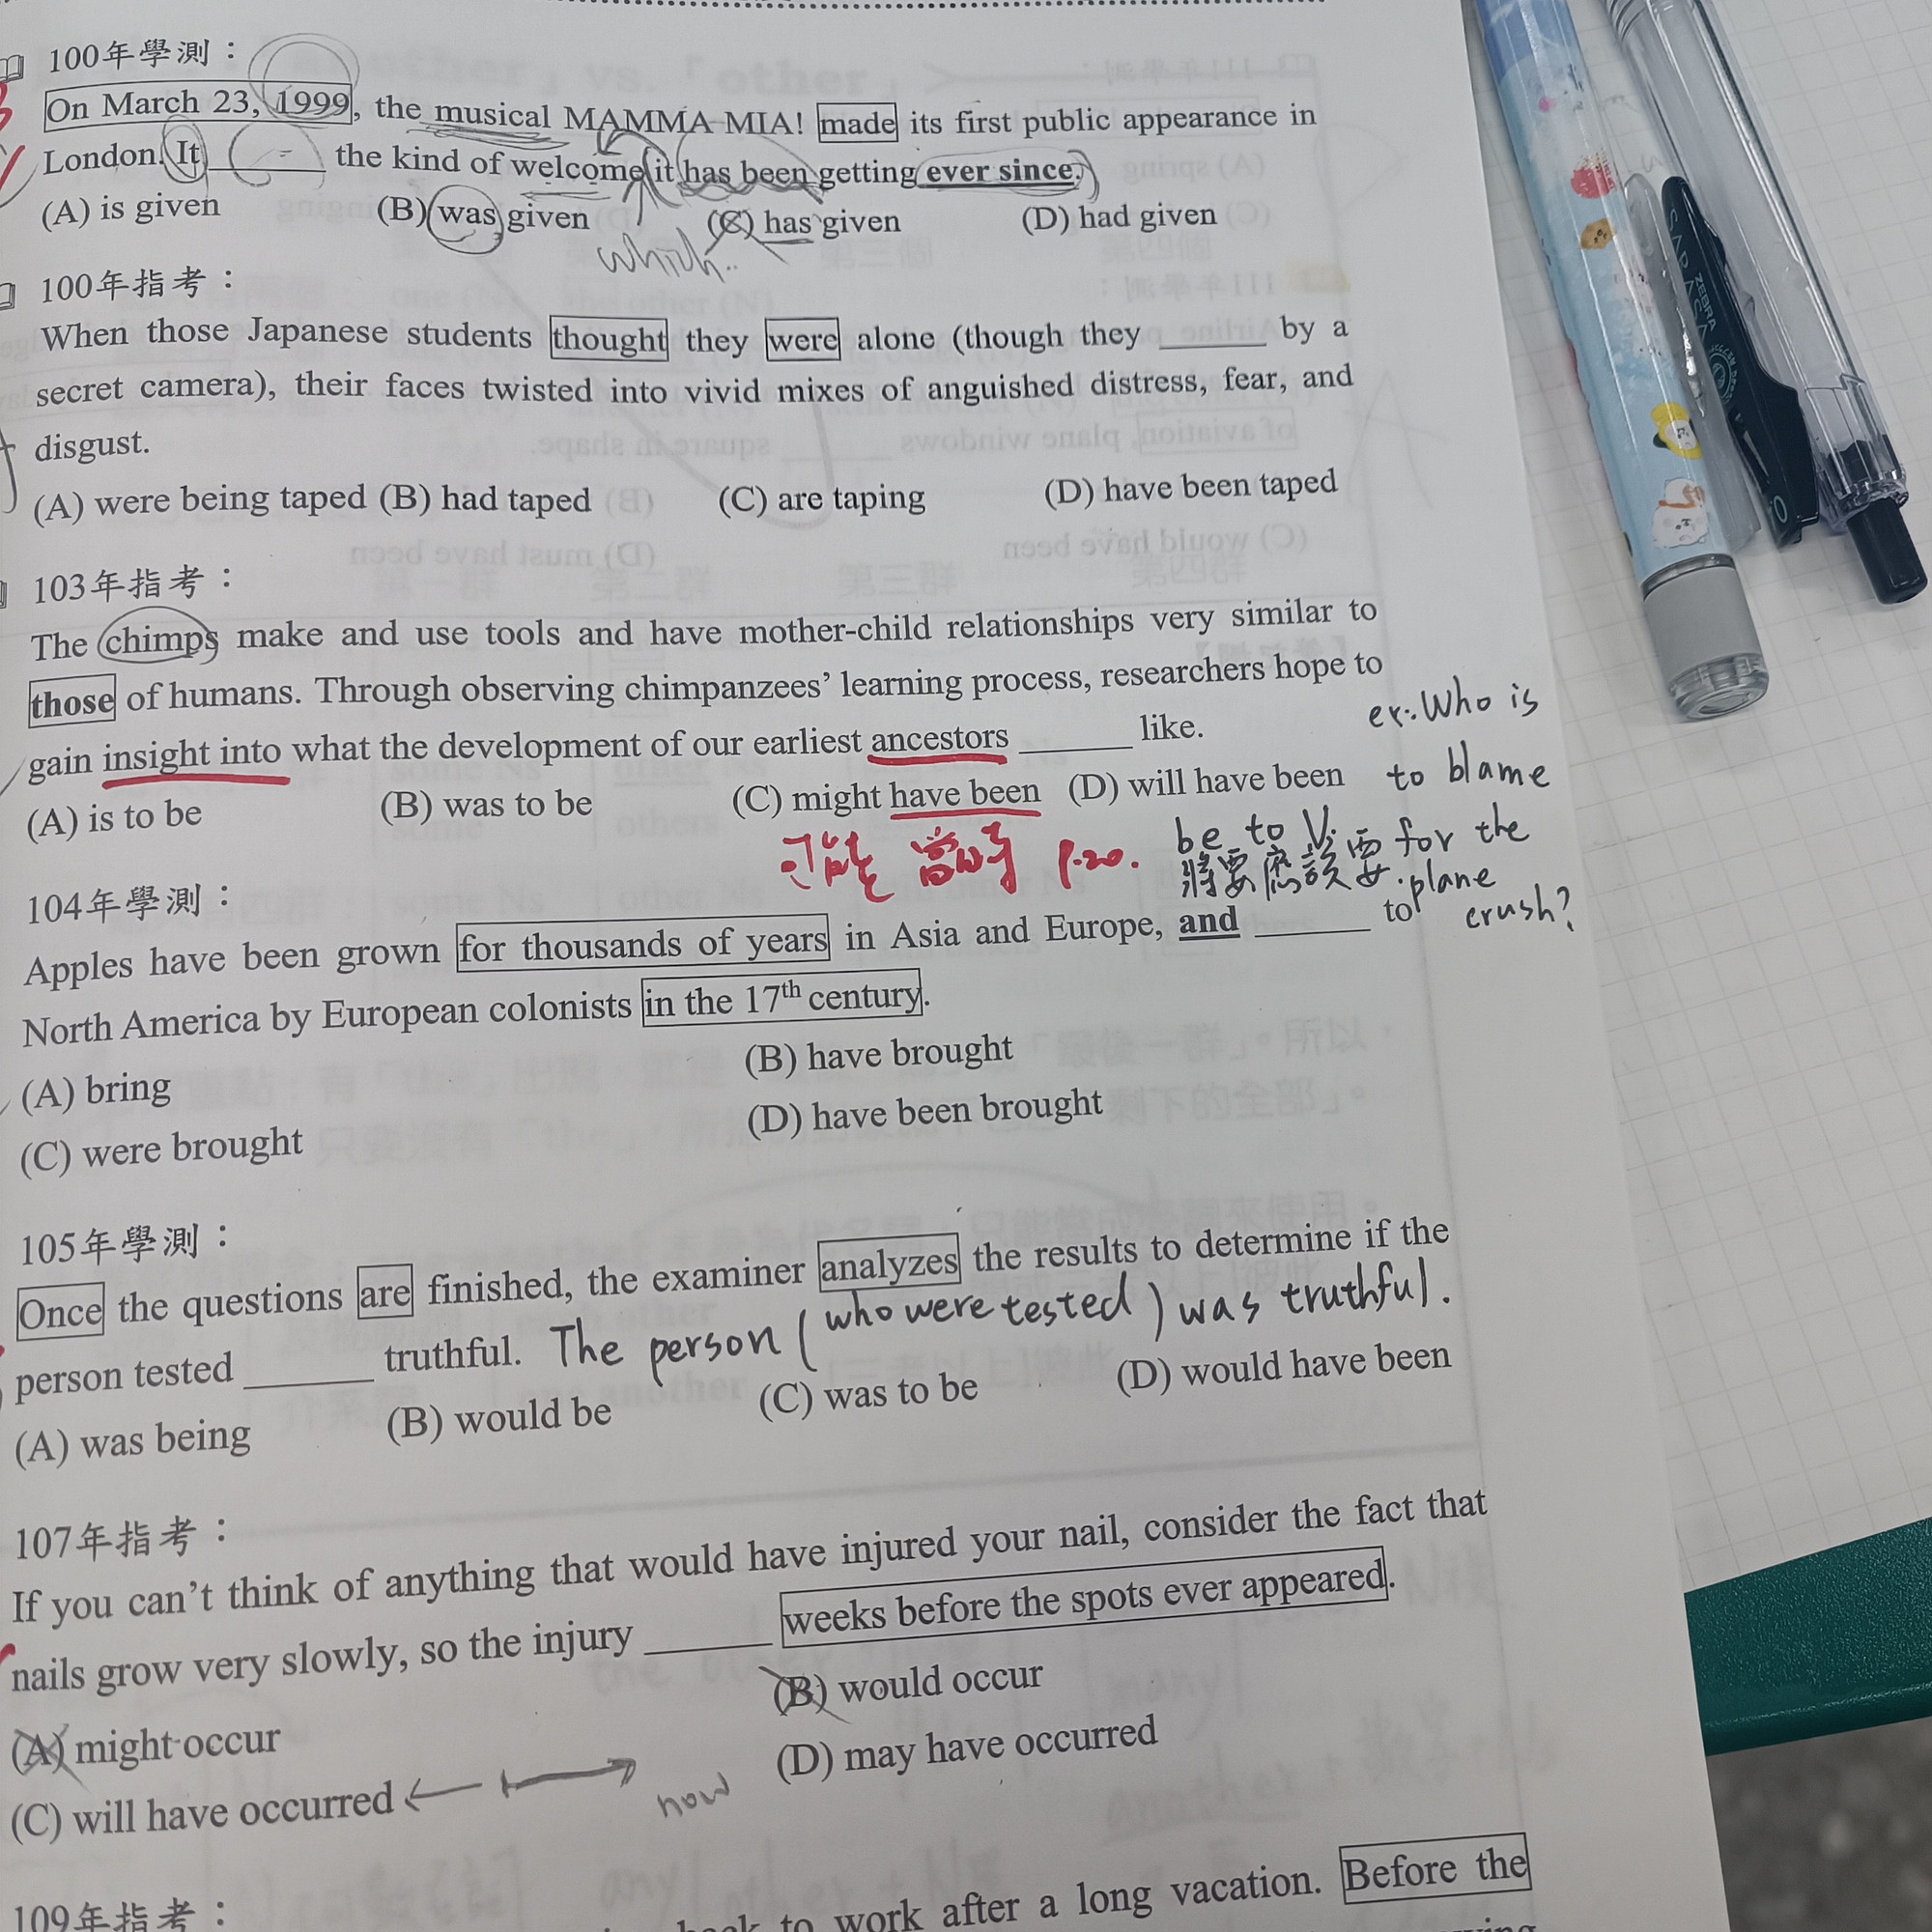 100年學測：
On March 23, 1999, the musical MAMMA MIA! made its first public appearance in
London. It ______ the kind of welcome it has been getting ever since.
(A) is given (B) was given (C) has given (D) had given
which..
100年指考：
When those Japanese students thought they were alone (though they ______ by a
secret camera), their faces twisted into vivid mixes of anguished distress, fear, and
disgust.
(A) were being taped (B) had taped (C) are taping (D) have been taped
103年指考：
The chimps make and use tools and have mother-child relationships very similar to
those of humans. Through observing chimpanzees' learning process, researchers hope to
gain insight into what the development of our earliest ancestors ______ like.
(A) is to be (B) was to be (C) might have been (D) will have been
可能 當時 p.20.
be to V.
將要應該要.
ex:. Who is
to blame
for the
plane
crush?
104年學測：
Apples have been grown for thousands of years in Asia and Europe, and ______ to
North America by European colonists in the 17th century.
(A) bring (B) have brought
(C) were brought (D) have been brought
105年學測：
Once the questions are finished, the examiner analyzes the results to determine if the
person tested ______ truthful. The person (who were tested) was truthful.
(A) was being (B) would be (C) was to be (D) would have been
107年指考：
If you can't think of anything that would have injured your nail, consider the fact that
nails grow very slowly, so the injury ______ weeks before the spots ever appeared.
(A) might occur (B) would occur
(C) will have occurred (D) may have occurred
now
109年指考：
to work after a long vacation. Before the
ZEBRA